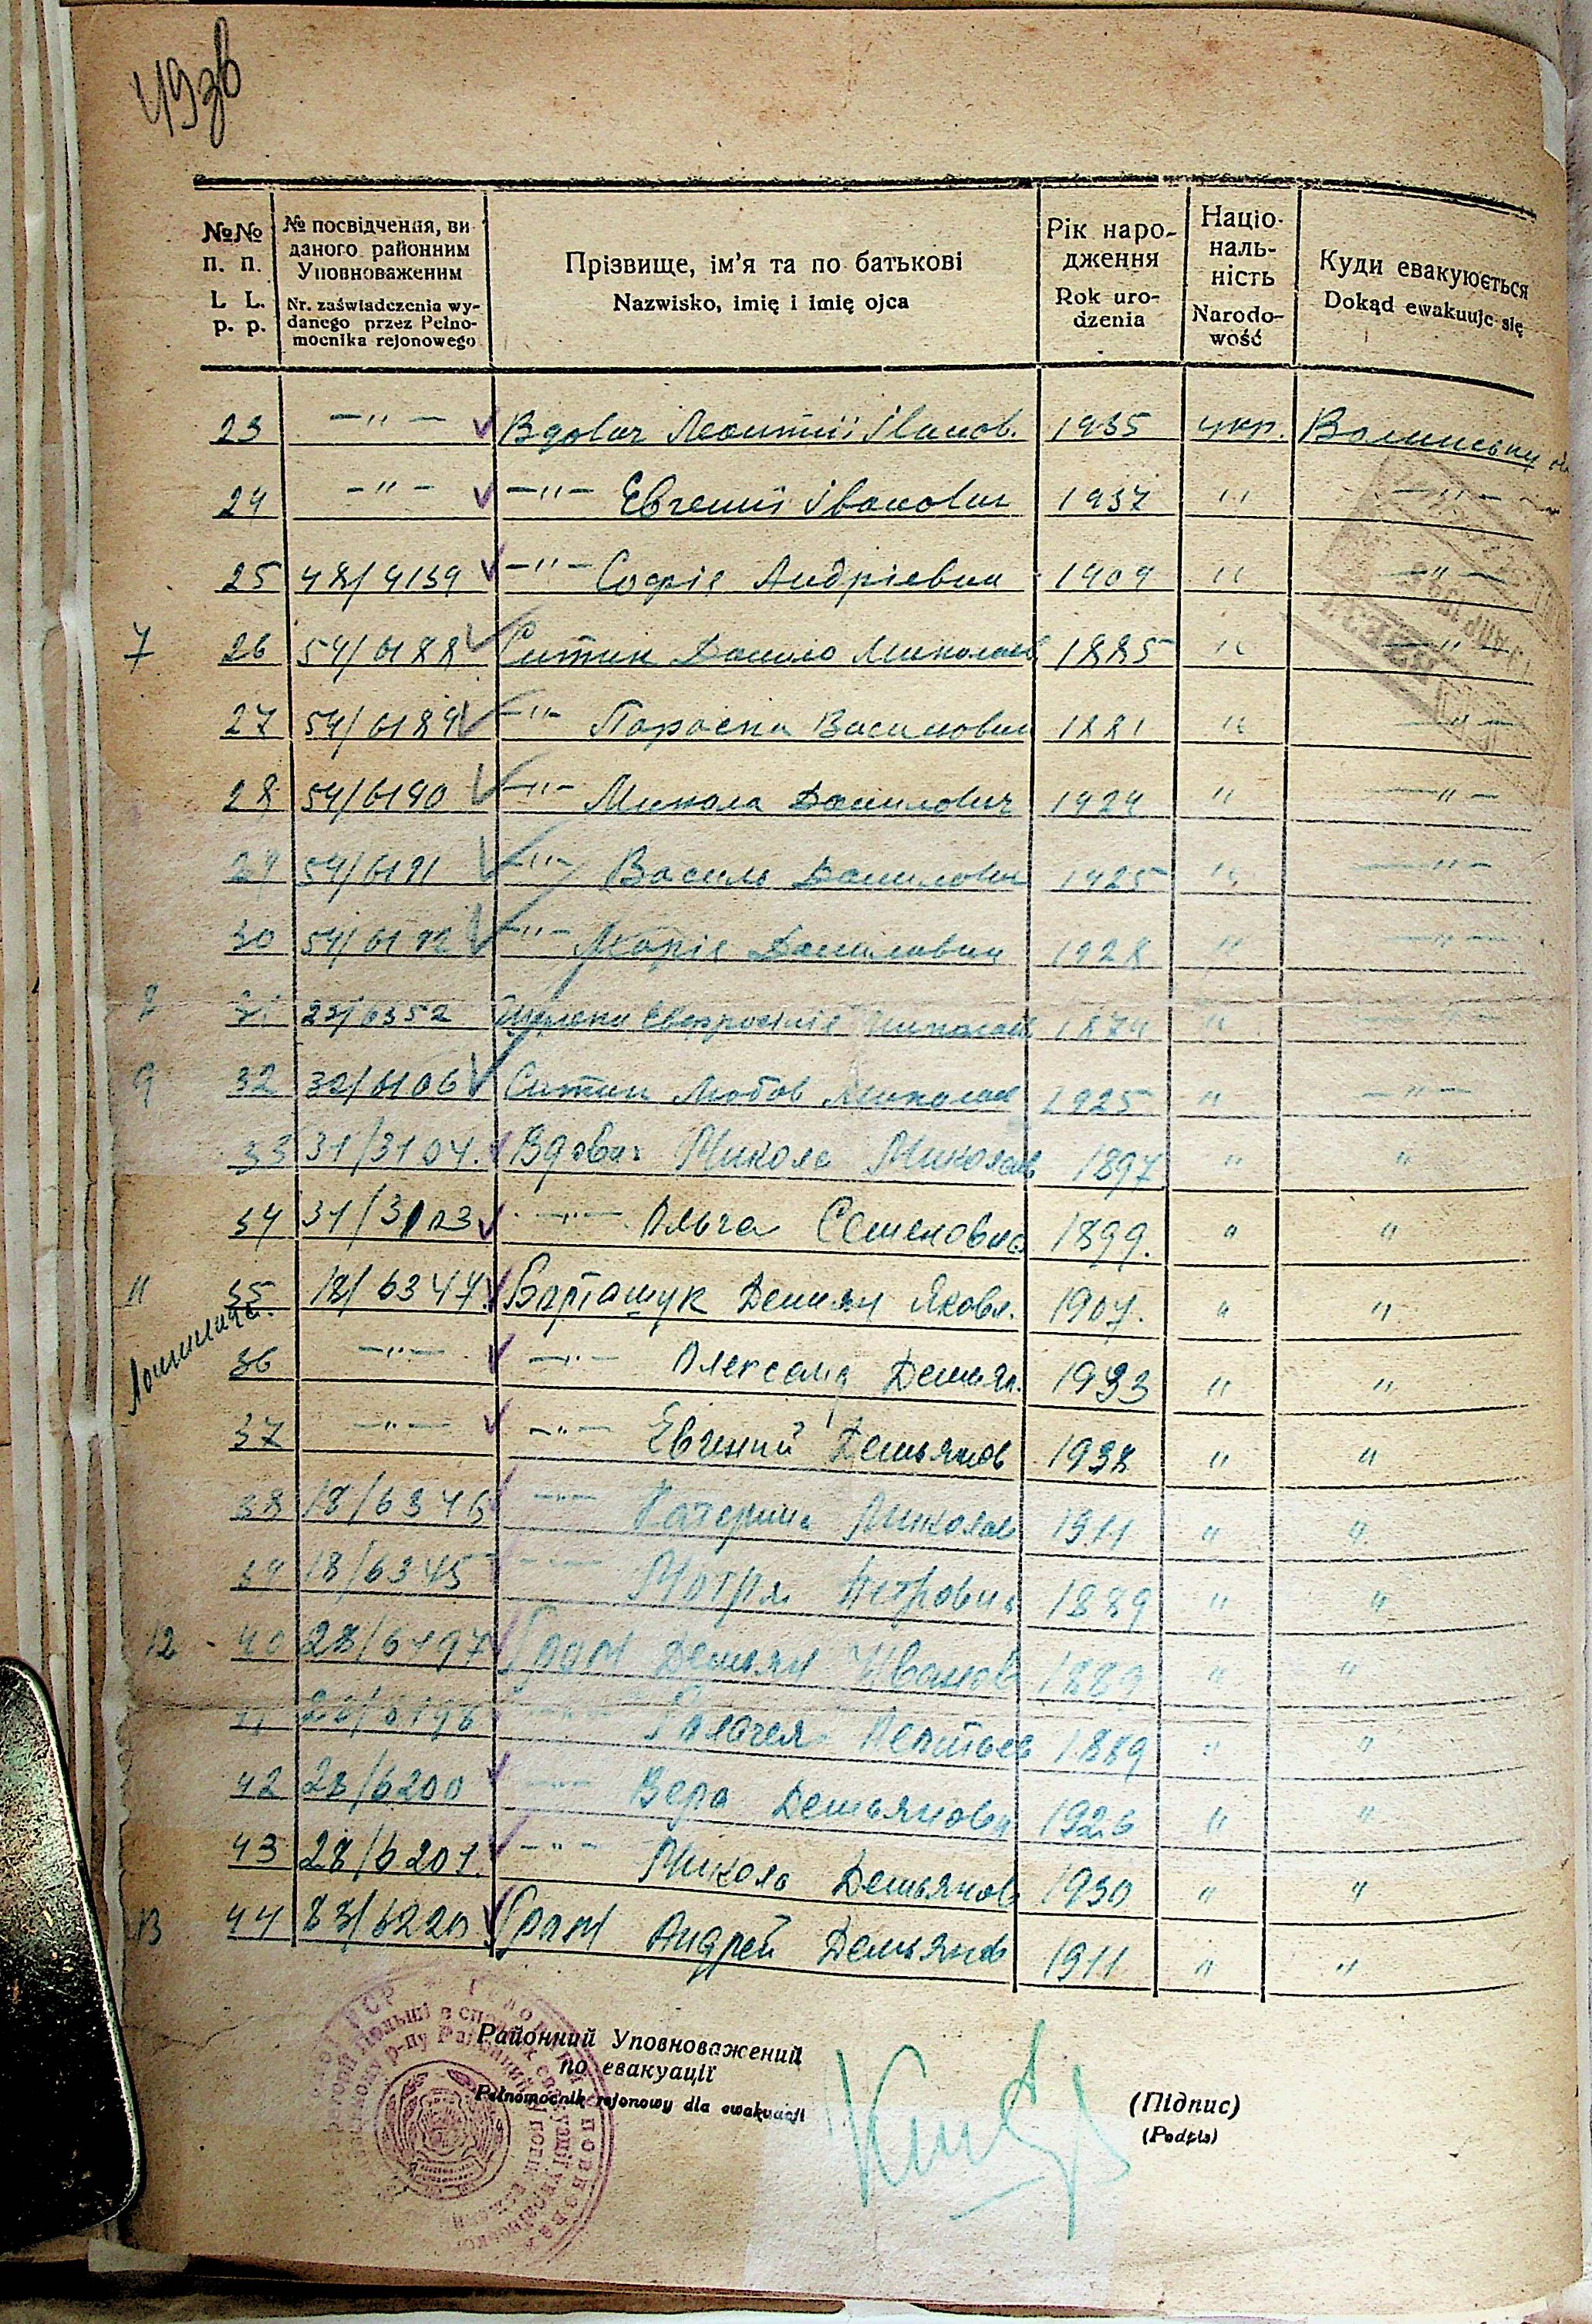 49зв
№№ п. п. L. L. p. p.
№ посвідчення, ви-
даного районним
Уповноваженим
Nr. zaświadczenia wy-
danego przez Pełno-
mocnika rejonowego
Прізвище, ім'я та по батькові
Nazwisko, imię i imię ojca
Рік наро-
дження
Rok uro-
dzenia
Націо-
наль-
ність
Narodo-
wość
Куди евакуюється
Dokąd ewakuuje się
23 —"— Вдович Леонтій Іванов. 1935 укр. Волинську
24 —"— —"— Євгеній Іванович 1937 " —"—
25 48/4139 —"— Софія Андрієвна 1909 " —"—
7 26 54/6188 Ситик Данило Миколаев 1885 " —"—
27 54/6189 —"— Параска Василовна 1881 " —"—
28 54/6190 —"— Микола Данилович 1924 " —"—
29 54/6191 —"— Василь Данилович 1925 " —"—
30 54/6192 —"— Марія Даниловна 1928 " —"—
8 31 23/6352 Евфросинія 1874 " —"—
9 32 30/6106 Ситик Любов Миколаев 1925 " —"—
33 31/3104. Вдович Микола Миколаев 1897 " "
34 31/3103 —"— Ольга Семеновна 1899. " "
11 35 18/6347. Барташук Демян Яковл. 1907. " "
36 —"— —"— Олександ Демьян. 1933 " "
37 —"— —"— Евгений Демьянов 1938 " "
38 18/6346 —"— Катерина Миколаев 1911 " "
39 18/6345 —"— Мотря Петровна 1889 " "
12 40 28/6197 Гром Демьян Иванов 1889 " "
41 28/6198 —"— Пелагея Леонтьев 1889 " "
42 28/6200 —"— Вера Демьяновн 1926 " "
43 28/6201. —"— Микола Демьянов 1930 " "
13 44 83/6220 Гром Андрей Демьянов 1911 " "
Районний Уповноважений
по евакуації
Pełnomocnik rejonowy dla ewakuacji
(Підпис)
(Podpis)